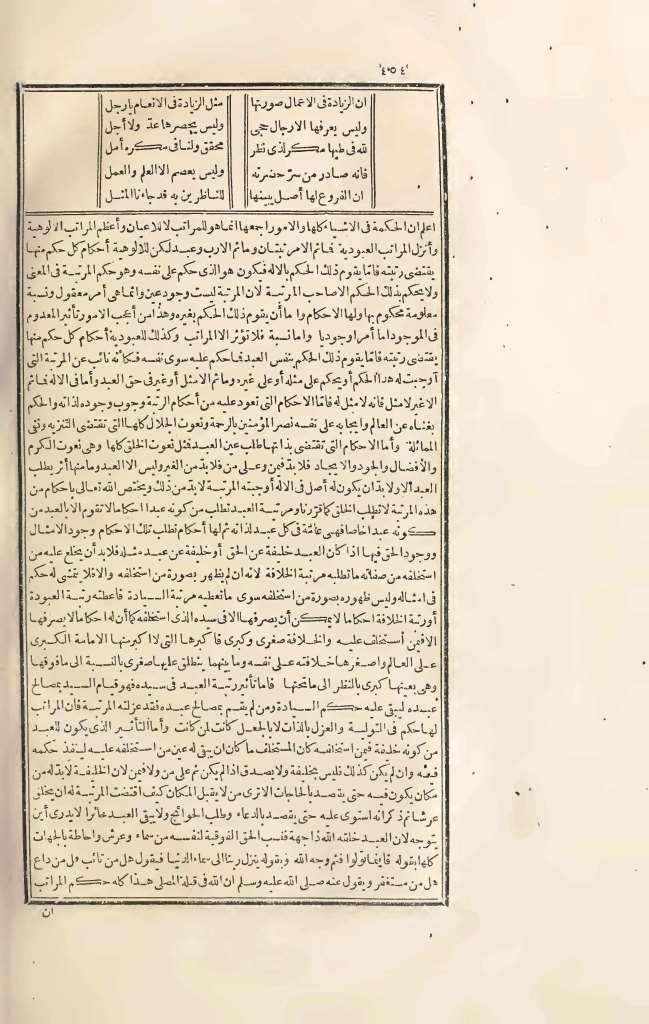 ٤٠٥
ان الزيادة فى الاعمال صورتها مثل الزيادة فى الانعام يا رجل
وليس يعرفها الا رجال حجى وليس يحصرها عدّ ولا أجل
لله فى طيها مكر لذى نظر محقق ولنا فى مكره أمل
فانه صادر من سرّ حضرته وليس يعصم الا العلم والعمل
ان الفروع لها أصل يبينها للناظرين به قد جاءنا المثل
اعلم ان الحكمة فى الاشياء كلها والامور اجمعها انما هو للمراتب لا للاعيان وأعظم المراتب الالوهية
وأنزل المراتب العبودية فما ثم الا مرتبتان وما ثم الا رب وعبد لكن للالوهية أحكام كل حكم منها
يقتضى رتبته فاما يقوم ذلك الحكم بالاله فيكون هو الذى حكم على نفسه وهو حكم المرتبة فى المعنى
ولا يحكم بذلك الحكم الا صاحب المرتبة لان المرتبة ليست وجود عين وانما هى أمر معقول ونسبة
معلومة محكوم بها ولها الاحكام واما أن يقوم ذلك الحكم بغيره وهذا من أعجب الامور تأثير المعدوم
فى الموجود اما أمرا وجوديا واما نسبة فلا تؤثر الا المراتب وكذلك للعبودية أحكام كل حكم منها
يقتضى رتبته فاما يقوم ذلك الحكم بنفس العبد فما حكم عليه سوى نفسه فكأنه نائب عن المرتبة التى
أوجبت له هذا الحكم أو يحكم على مثله أو على غيره وما ثم الا مثل أو غير فى حق العبد وأما فى الاله فما ثم
الا غير لا مثل فانه لا مثل له فاما الاحكام التى تعود عليه من أحكام الرتبة وجوب وجوده لذاته والحكم
بغناه عن العالم وايجابه على نفسه نصر المؤمنين بالرحمة ونعوت الجلال كلها التى تقتضى التنزيه ونفى
المماثلة وأما الاحكام التى تقتضى بذاتها طلب عين العبد فمثل نعوت الخلق كلها وهى نعوت الكرم
والافضال والجود والايجاد فلا بد فيمن وعلى من فلا بد من الغير وليس الا العبد وما منها أثر يطلب
العبد الا ولا بد أن يكون له أصل فى الاله أوجبته المرتبة لا بد من ذلك ويختص الله تعالى باحكام من
هذه المرتبة لا تطلب الخلق كما قررنا ومرتبة العبد تطلب من كونه عبدا احكاما لا تقوم الا بالعبد من
كونه عبدا خاصا فهى عامّة فى كل عبد لذاته ثم لها أحكام تطلب تلك الاحكام وجود الامثال
ووجود الحق فيها اذا كان العبد خليفة عن الحق أو خليفة عن عبد مثله فلا بد أن يخلع عليه من
استخلفه من صفاته ما تطلبه مرتبة الخلافة لانه ان لم يظهر بصورة من استخلفه والا فلا يتمشى له حكم
فى امثاله وليس ظهوره بصورة من استخلفه سوى ما تعطيه مرتبة السيادة فاعطته رتبة العبودة
أو رتبة الخلافة احكاما لا يمكن أن يصرفها الا فى سيده الذى استخلفه كما أن له احكاما لا يصرفها
الا فيمن استخلف عليه والخلافة صغرى وكبرى فاكبرها التى لا اكبر منها الامامة الكبرى
على العالم واصغرها خلافته على نفسه وما بينهما ينطلق عليها صغرى بالنسبة الى ما فوقها
وهى بعينها كبرى بالنظر الى ما تحتها فاما تأثير رتبة العبد فى سيده فهو قيام السيد بمصالح
عبده ليبقى عليه حكم السيادة ومن لم يقم بمصالح عبده فقد عزلته المرتبة فان المراتب
لها حكم فى التولية والعزل بالذات لا بالجعل كانت لمن كانت وأما التأثير الذى يكون للعبد
من كونه خليفة فيمن استخلفه كان المستخلف ما كان ان يبقى له عين من استخلفه عليه لينفذ حكمه
فيه وان لم يكن كذلك فليس بخليفة ولا يصدق اذا لم يكن ثم على من ولا فيمن لان الخليفة لا بد له من
مكان يكون فيه حتى يقصد بالحاجات الا ترى من لا يقبل المكان كيف اقتضت المرتبة له ان يخلق
عرشا ثم ذكر انه استوى عليه حتى يقصد بالدعاء وطلب الحوائج ولا يبقى العبد حائرا لا يدرى أين
يتوجه لان العبد خلقه الله ذا جهة فنسب الحق الفوقية لنفسه من سماء وعرش واحاطة بالجهات
كلها بقوله فاينما تولوا فثم وجه الله وبقوله ينزل ربنا الى سماء الدنيا فيقول هل من تائب هل من داع
هل من مستغفر ويقول عنه صلى الله عليه وسلم ان الله فى قبلة المصلى هذا كله حكم المراتب
ان